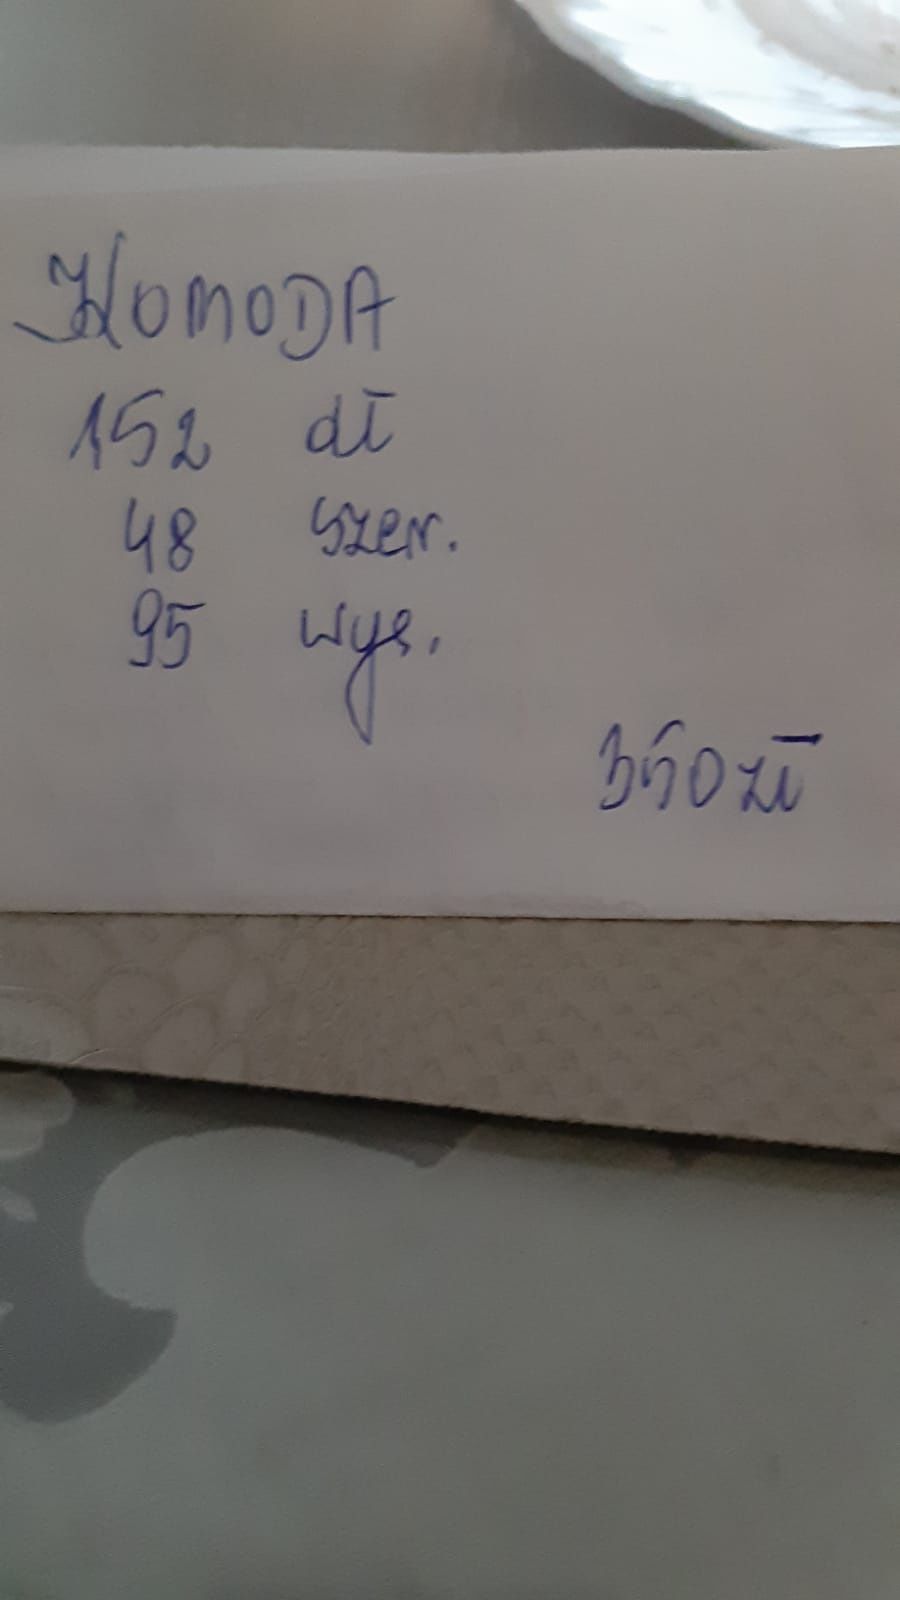 KOMODA
152 dł
48 szer.
95 wys.
350 zł